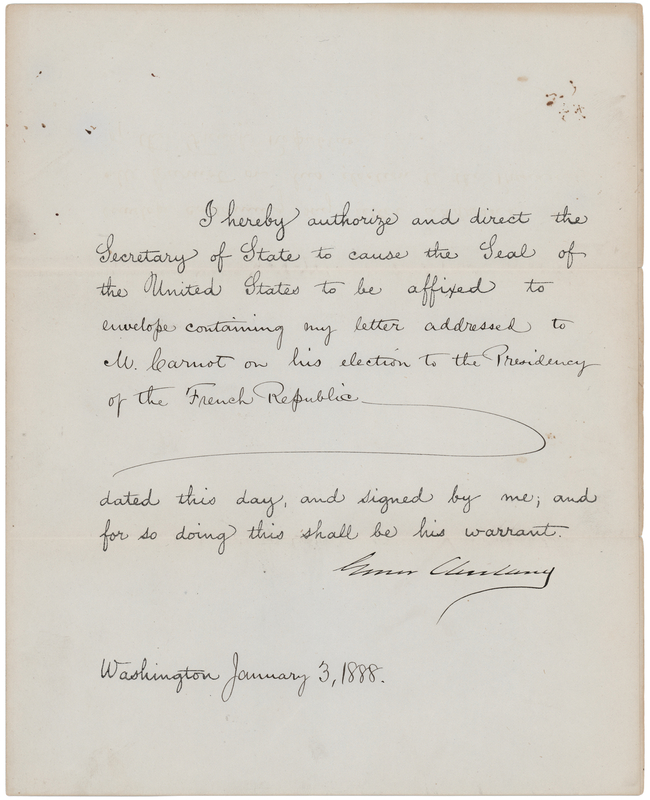 I hereby authorize and direct the
Secretary of State to cause the Seal of
the United States to be affixed to
envelope containing my letter addressed to
M. Carnot on his election to the Presidency
of the French Republic
dated this day, and signed by me; and
for so doing this shall be his warrant.
Grover Cleveland
Washington January 3, 1888.